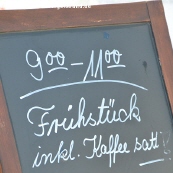 9⁰⁰ – 11⁰⁰
Frühstück
inkl. Kaffee satt